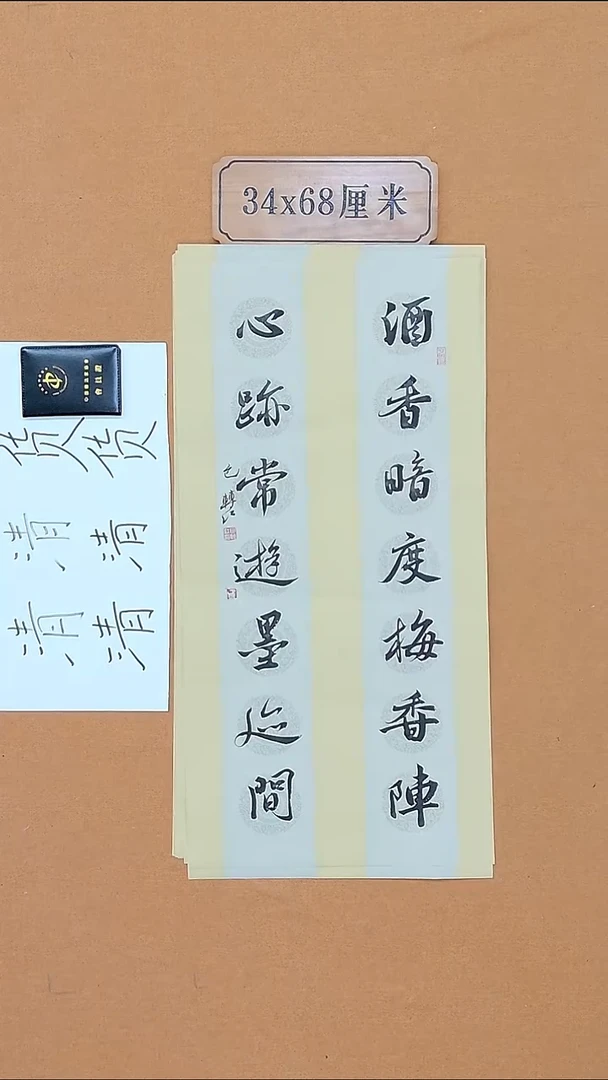 34x68厘米
酒香暗度梅香陣
心跡常遊墨迹間
货货
清清
清清